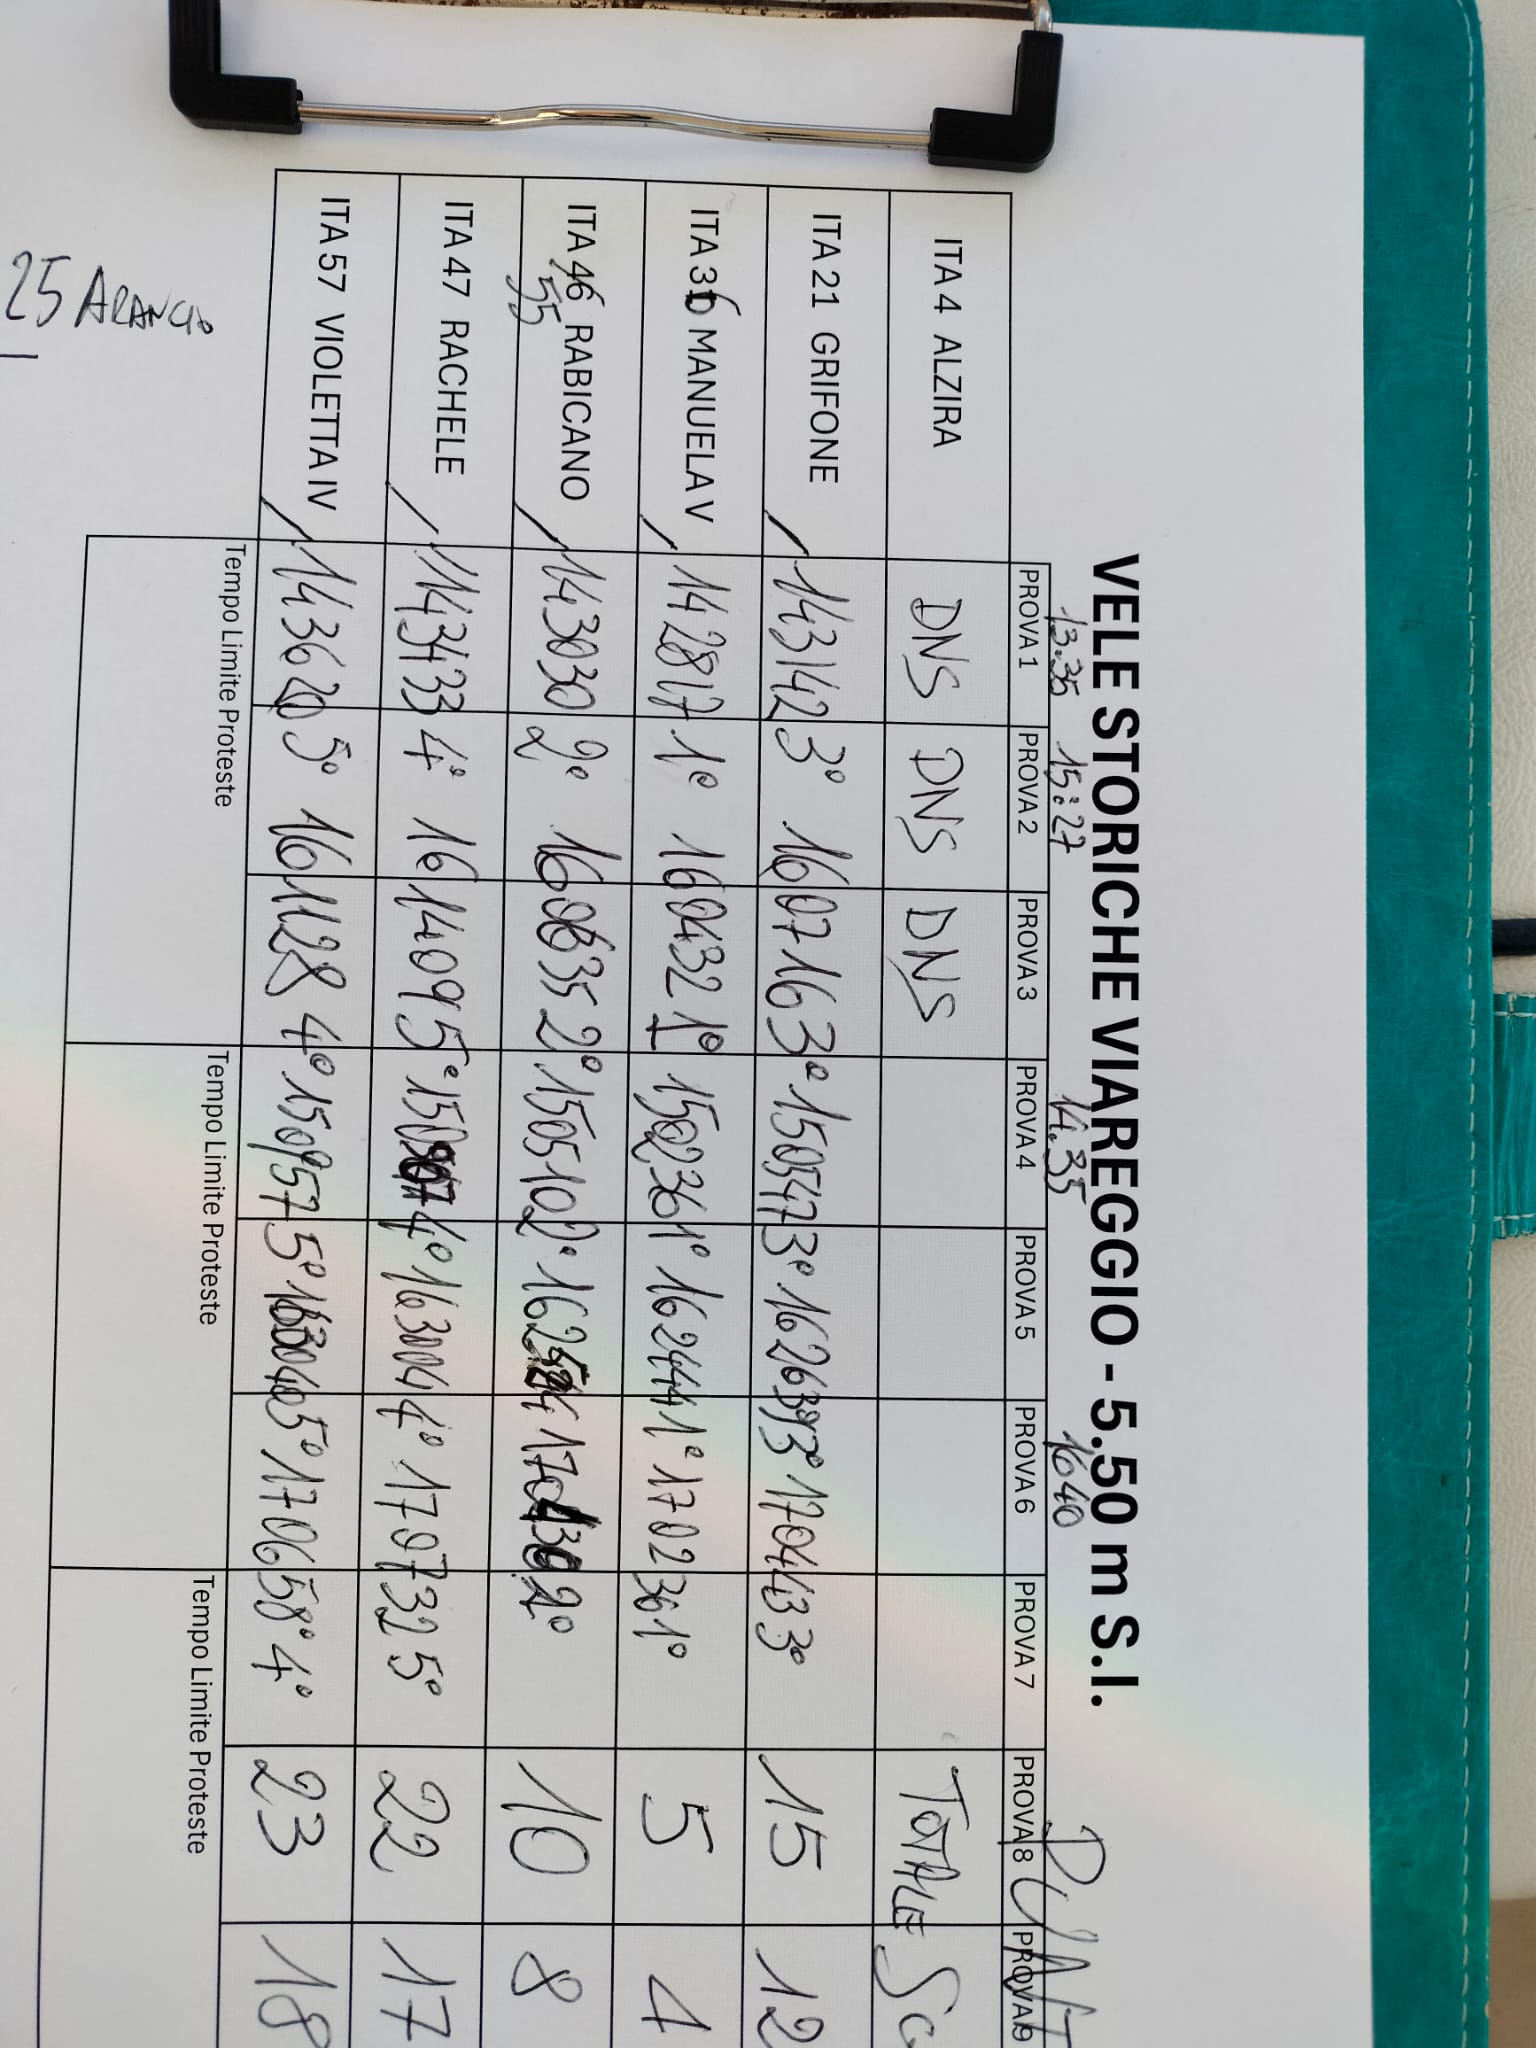 VELE STORICHE VIAREGGIO - 5.50 m S.I.
13.35 15:27 14.35 1640
PROVA 1 PROVA 2 PROVA 3 PROVA 4 PROVA 5 PROVA 6 PROVA 7 PROVA 8 PROVA 9
ITA 4 ALZIRA DNS DNS DNS TOTALE
ITA 21 GRIFONE 143142 3° 160716 3° 150547 3° 162639 3° 170443 3° 15 12
ITA 36 MANUELA V 142817 1° 160432 1° 150236 1° 162441 1° 170236 1° 5 4
ITA 46 RABICANO 143030 2° 160635 2° 150510 2° 2° 10 8
55
ITA 47 RACHELE 143433 4° 161409 5° 4° 163004 4° 170732 5° 22 17
ITA 57 VIOLETTA IV 143620 5° 161128 4° 150957 5° 5° 170658 4° 23 18
Tempo Limite Proteste Tempo Limite Proteste Tempo Limite Proteste
25 ARANCIO